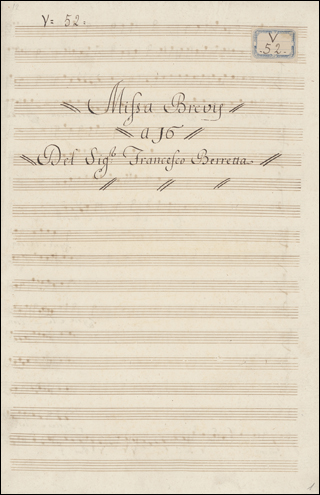 V: 52.
V
52.
Missa Brevis
a 16
Del Sig.r Francesco Berretta
1